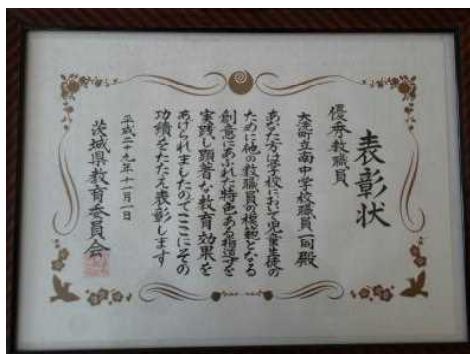 表彰状
優秀教職員
大洗町立南中学校職員一同殿
あなた方は学校において児童生徒の
ために他の教職員の模範となる
創意にあふれた特色ある指導を
実践し顕著な教育効果を
あげられましたのでここにその
功績をたたえ表彰します
平成二十九年十一月一日
茨城県教育委員会